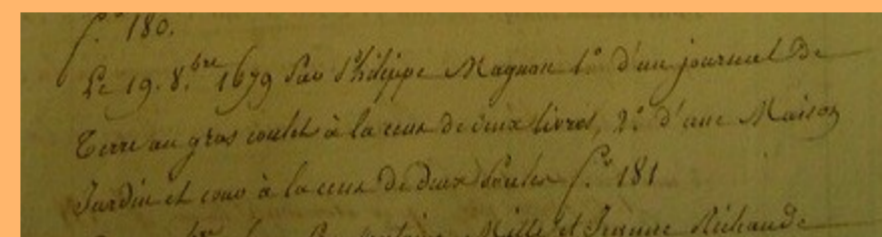 f.° 180.
Le 19. 8.bre 1679 Par Philippe Magnan 1.° d'un journal de
Terre au gros coulet à la cens de deux livres, 2.° d'une Maison
Jardin et cour à la cens de deux Poules f.° 181
Mille et Jeanne Richaude